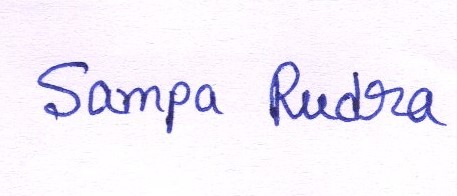 Sampa Rudra